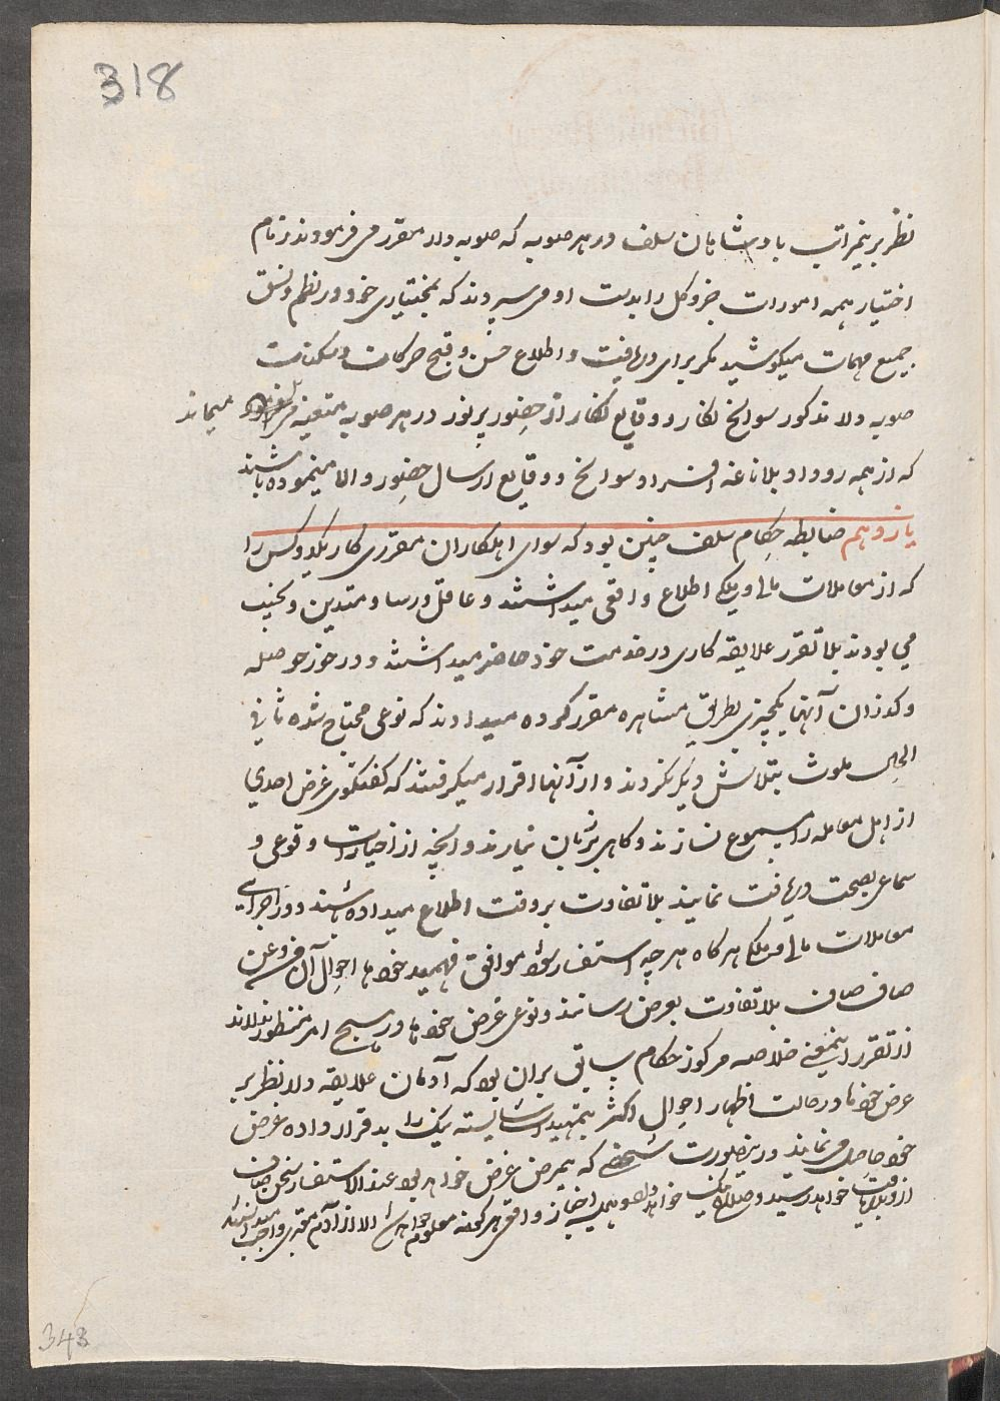 318
نظر برینمراتب بادشاهان سلف در هر صوبه که صوبه دار مقرر می فرمودند زمام
اختیار همه امورات جزو کل را بدست او می سپردند که بمختیاری خود در نظم و نسق
جمیع مهمات میکوشید مگر برای دریافت و اطلاع حسن و قبح حرکات و سکنات
صوبه دار مذکور سوانح نگار و وقایع نگار از حضور پرنور در هر صوبه متعینه میماند
که از همه رویداد بلاناغه افراد سوانح و وقایع ارسال حضور والا مینموده باشند
یازدهم ضابطه حکام سلف چنین بود که سوای اهلکاران مقرری کار یکدو کس را
که از معاملات مالی و ملکی اطلاع واقعی میداشتند و عاقل و رسا و متدین و نجیب
می بودند بلا تقرر علاقه کاری در خدمت خود حاضر میداشتند و در خور حوصله
و گذران آنها یکچیزی بطریق مشاهره مقرر کرده میدادند که نوعی محتاج شده ثانی
الحال ملوث بتلاش دیگر نگردند و از آنها اقرار میگرفتند که گفتگوی غرض احدی
از اهل معامله را مسموع نسازند و گاهی بر زبان نیارند و آنچه از اخبارات وقوعی و
سماعی بصحت دریافت نمایند بلا تفاوت بر وقت اطلاع میداده باشند و در اجرای
معاملات مالی و ملکی هر گاه هر چه استفسار شود موافق فهمید خودها احوال آن
صاف صاف بلا تفاوت بعرض رسانند و نوعی غرض خودها در هیچ امر منظور ندارند
از تقرر اینمعنی خلاصه مرکوز حکام سابق بران بود که آدمان علاقه دار نظر بر
غرض خودها در حالت اظهار احوال اکثر بتمهید شایسته نیک را بد قرار داده غرض
خود حاصل می نمایند درینصورت شخصی که بیغرض خواهد بود عندالاستفسار سخن صاف
از و دریافت خواهد رسید و صلاح نیک خواهد داد
343